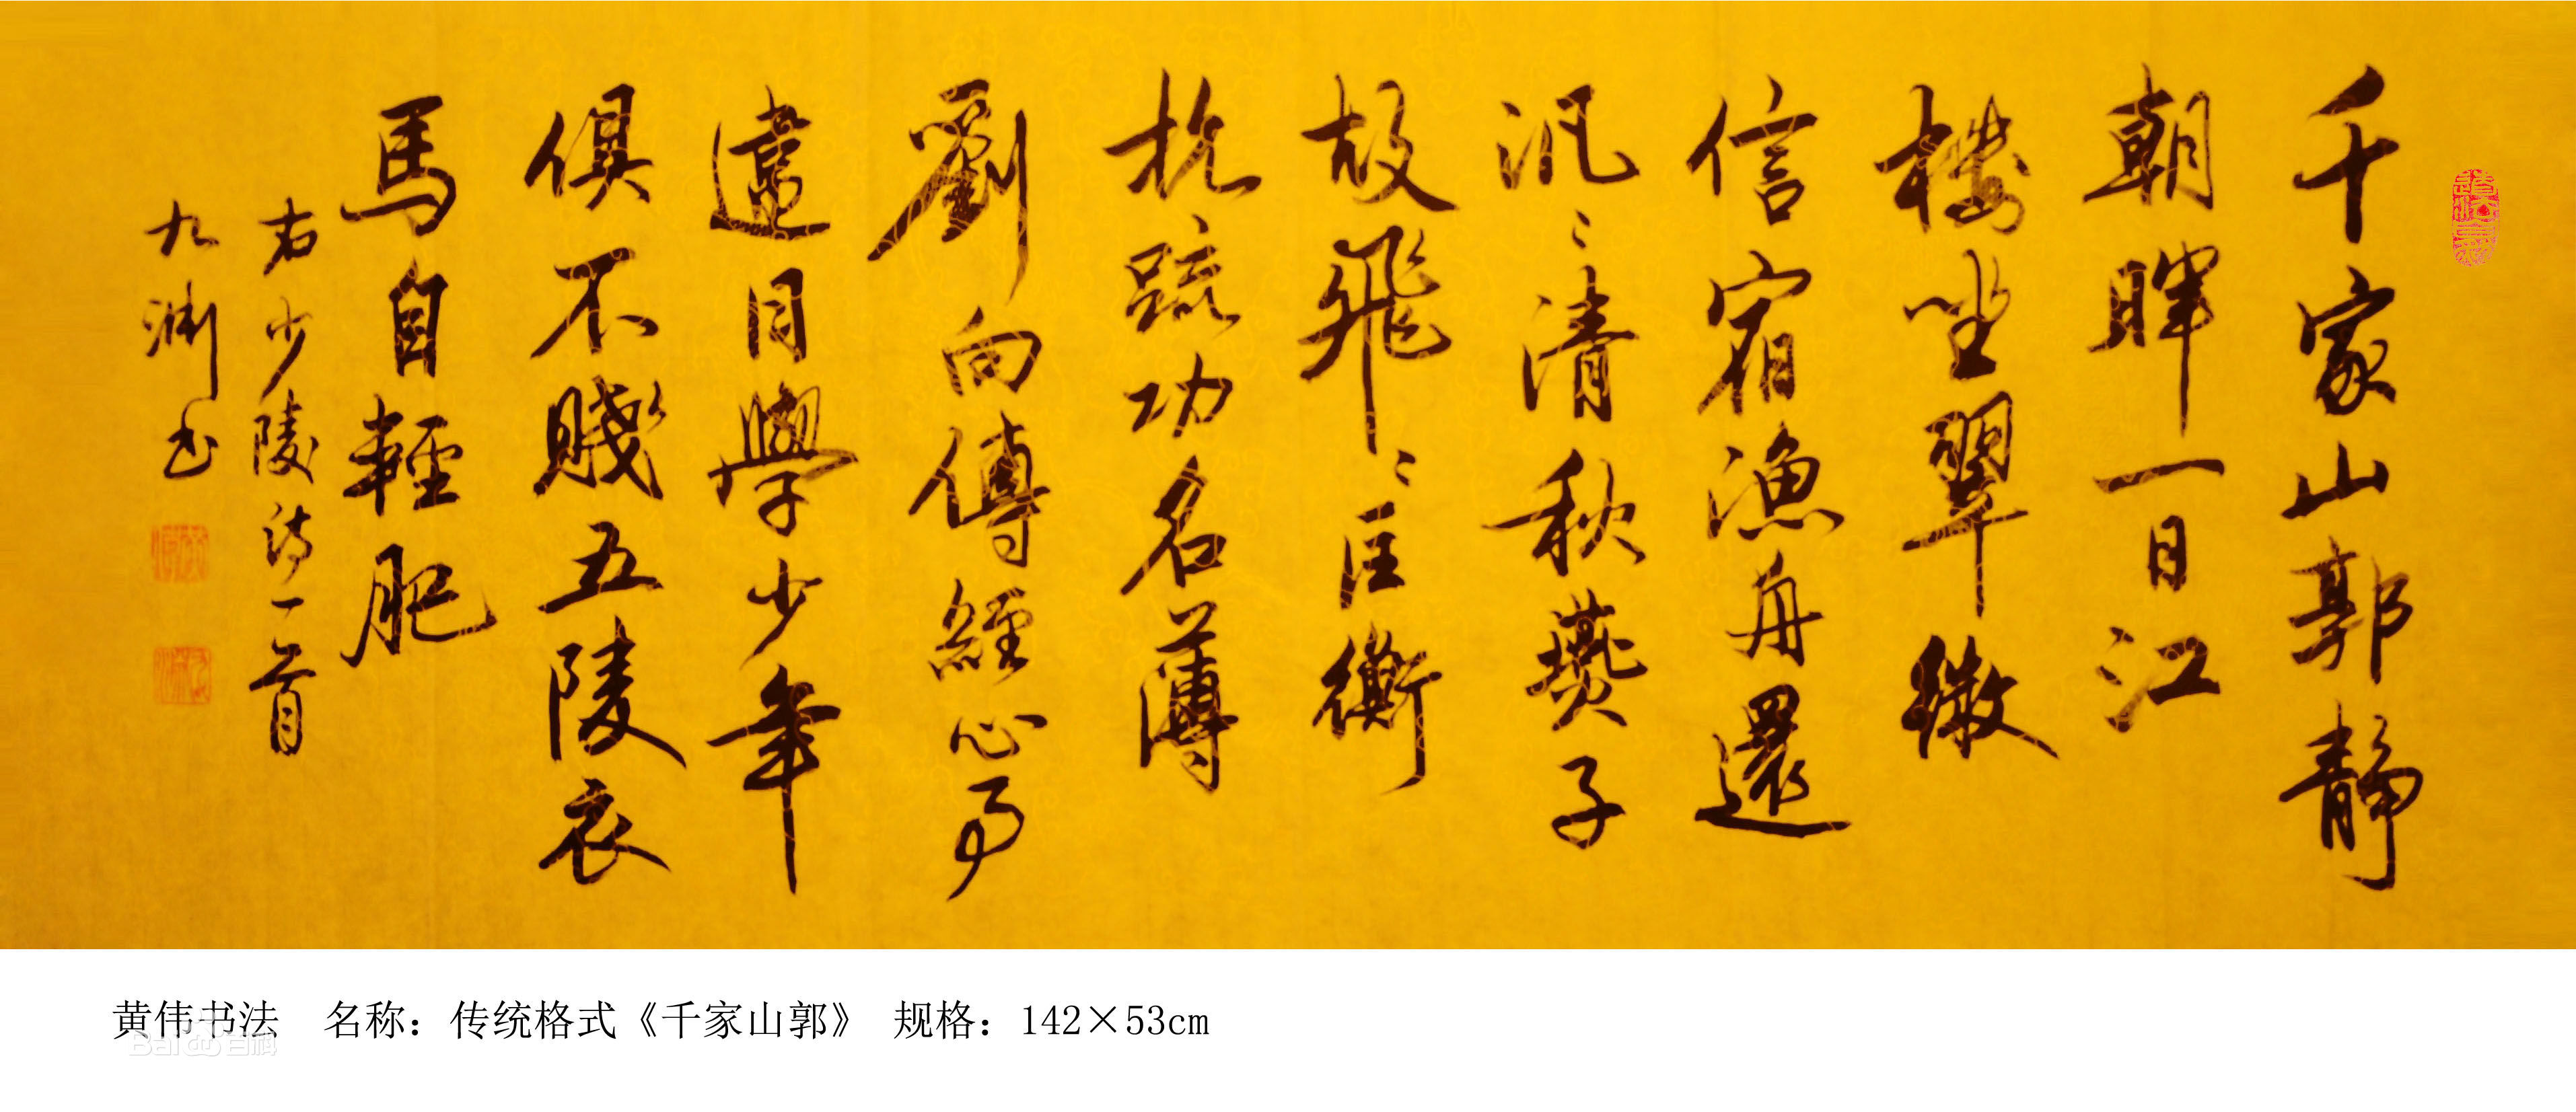 千家山郭靜
朝暉一日江
樓坐翠微
信宿漁舟還
汎〻清秋燕子
故飛〻匡衡
抗疏功名薄
劉向傳經心事
違同學少年
俱不賤五陵衣
馬自輕肥
右少陵詩一首
九淵书
黄伟书法 名称：传统格式《千家山郭》 规格：142×53cm
Bai百科